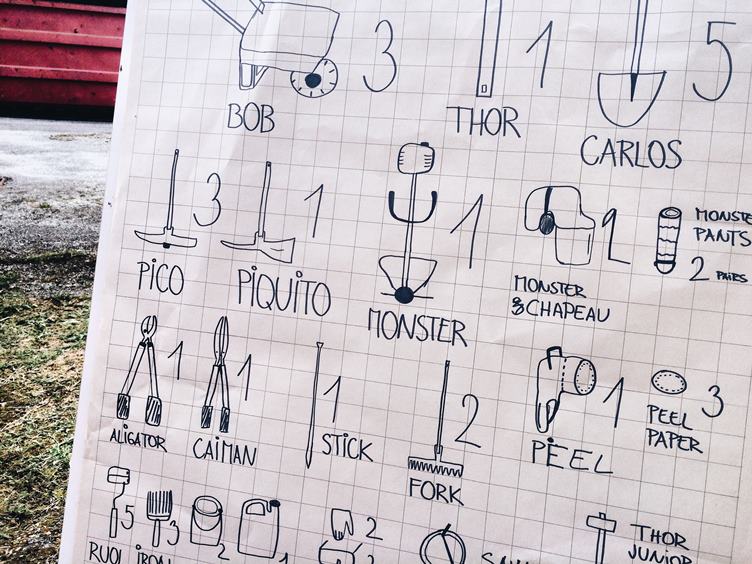 3
1
5
BOB
THOR
CARLOS
3
1
1
2
MONSTE
PANTS
2 PAIRS
PiCO
PiQUiTO
MONSTER
MONSTER
CHAPEAU
1
1
1
2
1
3
ALiGATOR
CAiMAN
STiCK
FORK
PEEL
PEEL
PAPER
5
3
2
1
2
THOR
JUNiOR